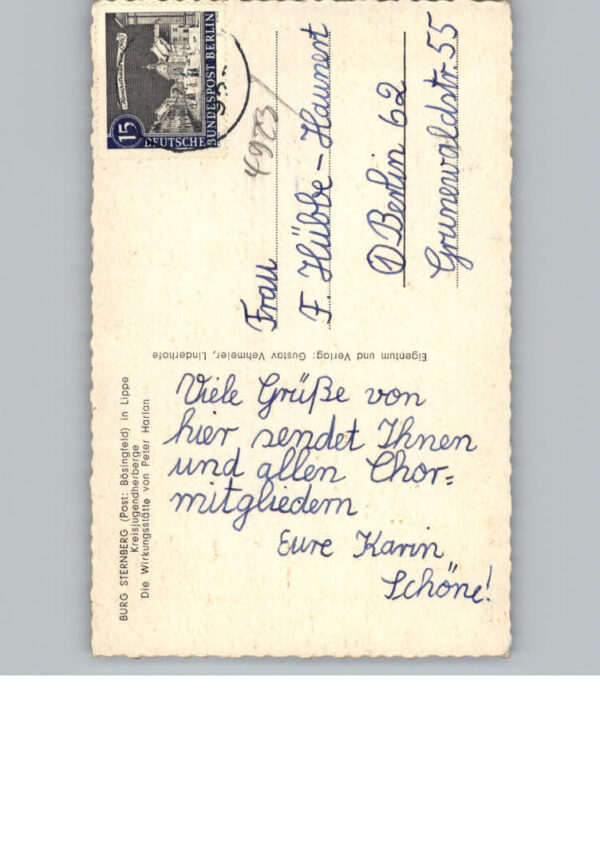 BURG STERNBERG (Post: Bösingfeld) in Lippe
Kreisjugendherberge
Die Wirkungsstätte von Peter Harlan
Viele Grüße von
hier sendet Ihnen
und allen Chor=
mitgliedern
Eure Karin
Schöne!
Eigentum und Verlag: Gustav Vehmeier, Linderhofe
15
DEUTSCHE
BUNDESPOST BERLIN
4923
Frau
F. Hübbe-Haunert
1 Berlin 62
Grunewaldstr. 55